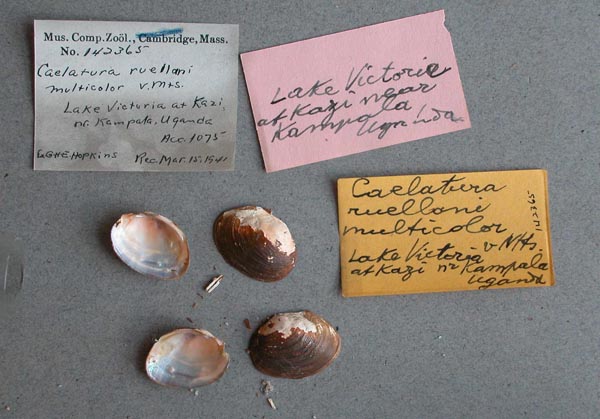 Mus. Comp. Zoöl., Cambridge, Mass.
No. 142365
Caelatura ruelloni
multicolor v. Mts.
Lake Victoria at Kazi,
nr. Kampala, Uganda
Acc. 1075
G.H.E. Hopkins Rec. Mar. 15. 1941
Lake Victoria
at Kazi near
Kampala
Uganda.
Caelatura
ruelloni
multicolor
v. Mts.
Lake Victoria
at Kazi nr Kampala
Uganda
142365